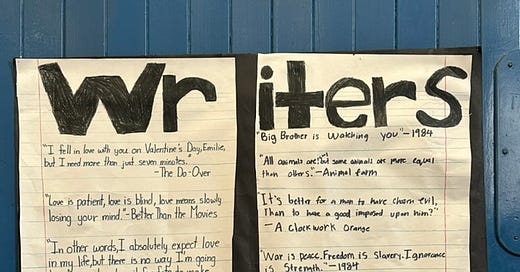 Writers
"I fell in love with you on Valentine's Day, Emilie,
but I need more than just seven minutes."
-The Do-Over
"Love is patient, love is blind, love means slowly
losing your mind."-Better Than the Movies
"In other words, I absolutely expect love
in my life, but there is no way I'm going
"Big Brother is Watching you"-1984
"All animals are but some animals are more equal
than others."-Animal farm
"It's better for a man to have chosen evil,
Than to have a good imposed upon him?"
-A clockwork Orange
"War is peace. Freedom is Slavery. Ignorance
is Strength."-1984